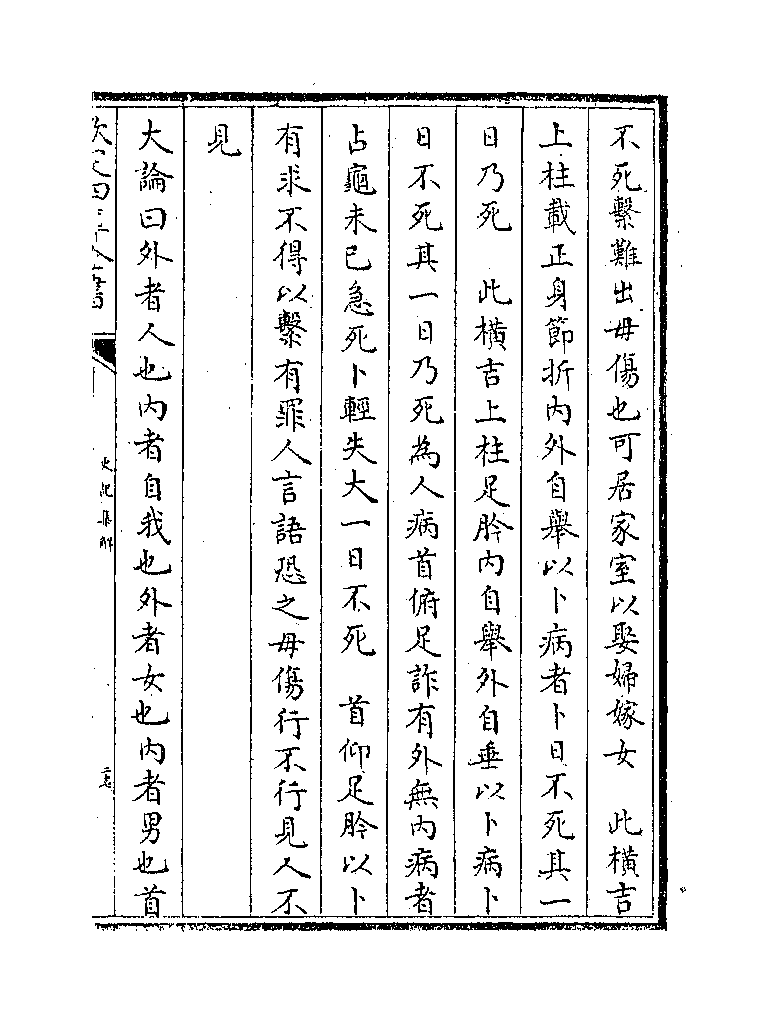 不死繫難出毋傷也可居家室以娶婦嫁女　此橫吉
上柱載正身節折内外自舉以卜病者卜日不死其一
日乃死　此橫吉上柱足肣内自舉外自垂以卜病卜
日不死其一日乃死為人病首俯足詐有外無内病者
占龜未已急死卜輕失大一日不死　首仰足肣以卜
有求不得以繫有罪人言語恐之毋傷行不行見人不
見
大論曰外者人也内者自我也外者女也内者男也首
史記集解